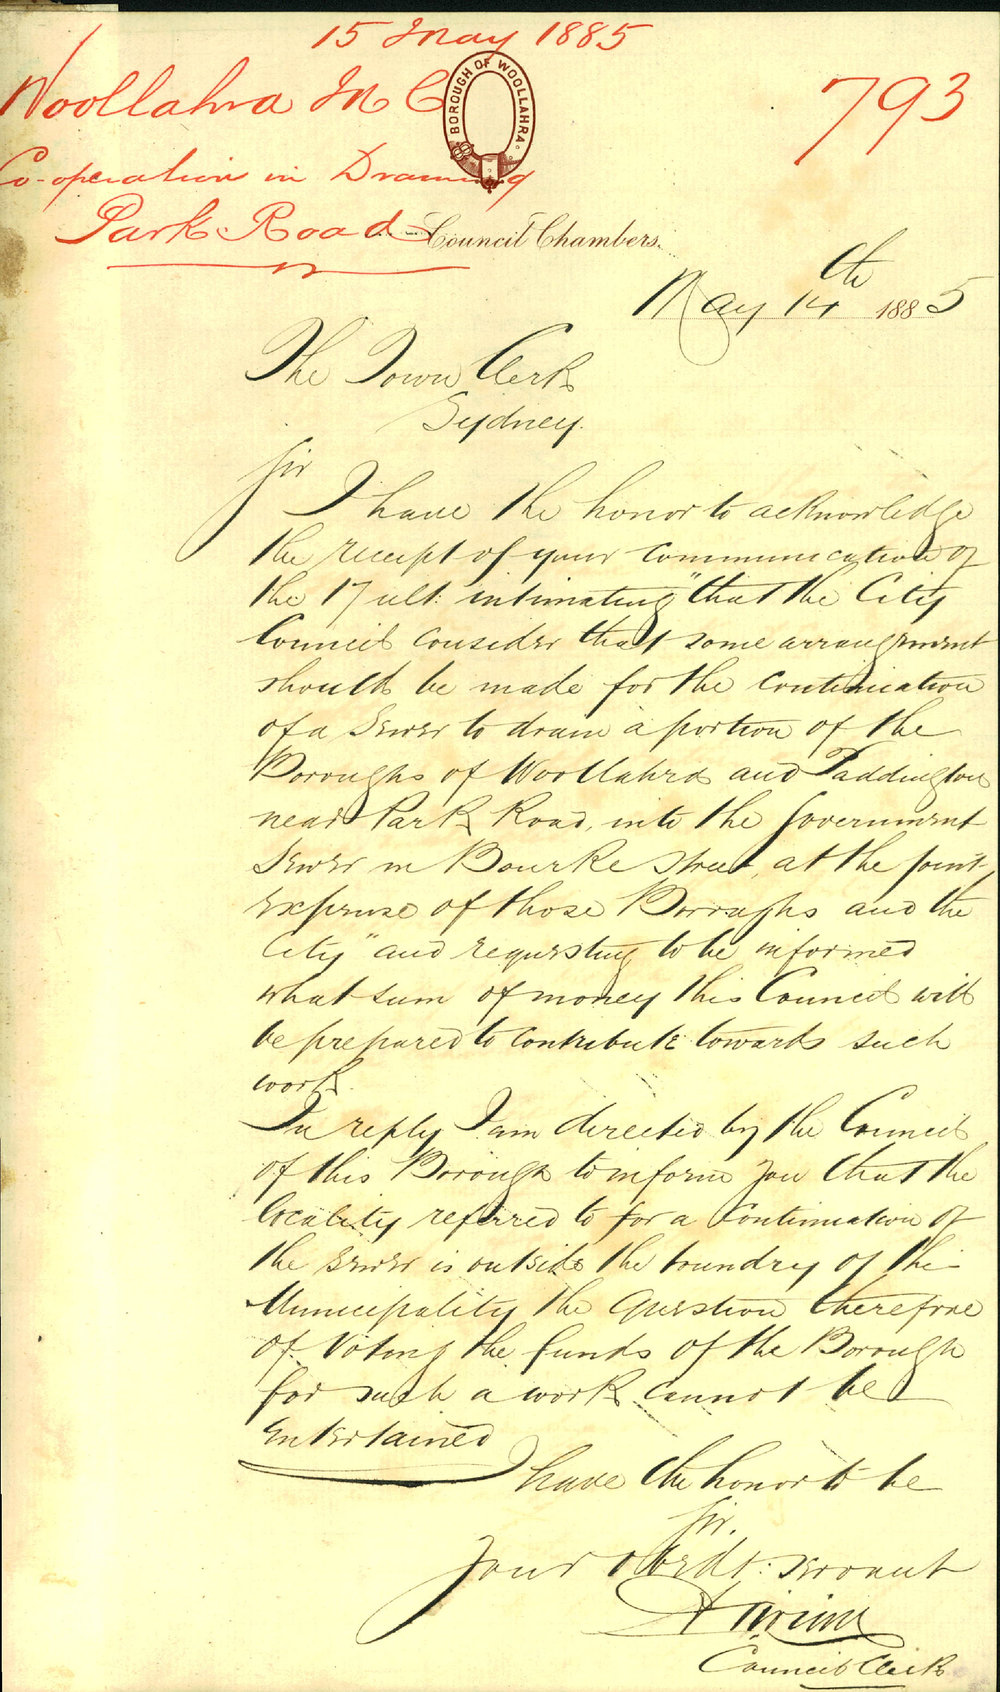 15 May 1885
Woollahra M C
793
BOROUGH OF WOOLLAHRA.
Co-operation in Draining
Park Road
Council Chambers.
May 14th 1885
The Town Clerk
Sydney.
Sir
I have the honor to acknowledge
the receipt of your communication of
the 17 ult: intimating "that the City
Council consider that some arrangement
should be made for the continuation
of a Sewer to drain a portion of the
Boroughs of Woollahra and Paddington
near Park Road, into the Government
Sewer in Bourke Street, at the joint
expense of those Borroughs and the
City" and requesting to be informed
what sum of money this Council will
be prepared to contribute towards such
work.
In reply I am directed by the Council
of this Borough to inform you that the
locality referred to for a continuation of
the sewer is outside the boundry of this
Municipality the question therefore
of voting the funds of the Borough
for such a work cannot be
entertained
I have the honor to be
Sir.
Your obedt: servant
Council Clerk